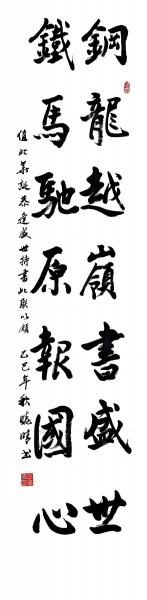 鋼龍越嶺書盛世
鐵馬馳原報國心
值此華誕恭逢盛世特書此聯以頌
乙巳年秋曉晴書